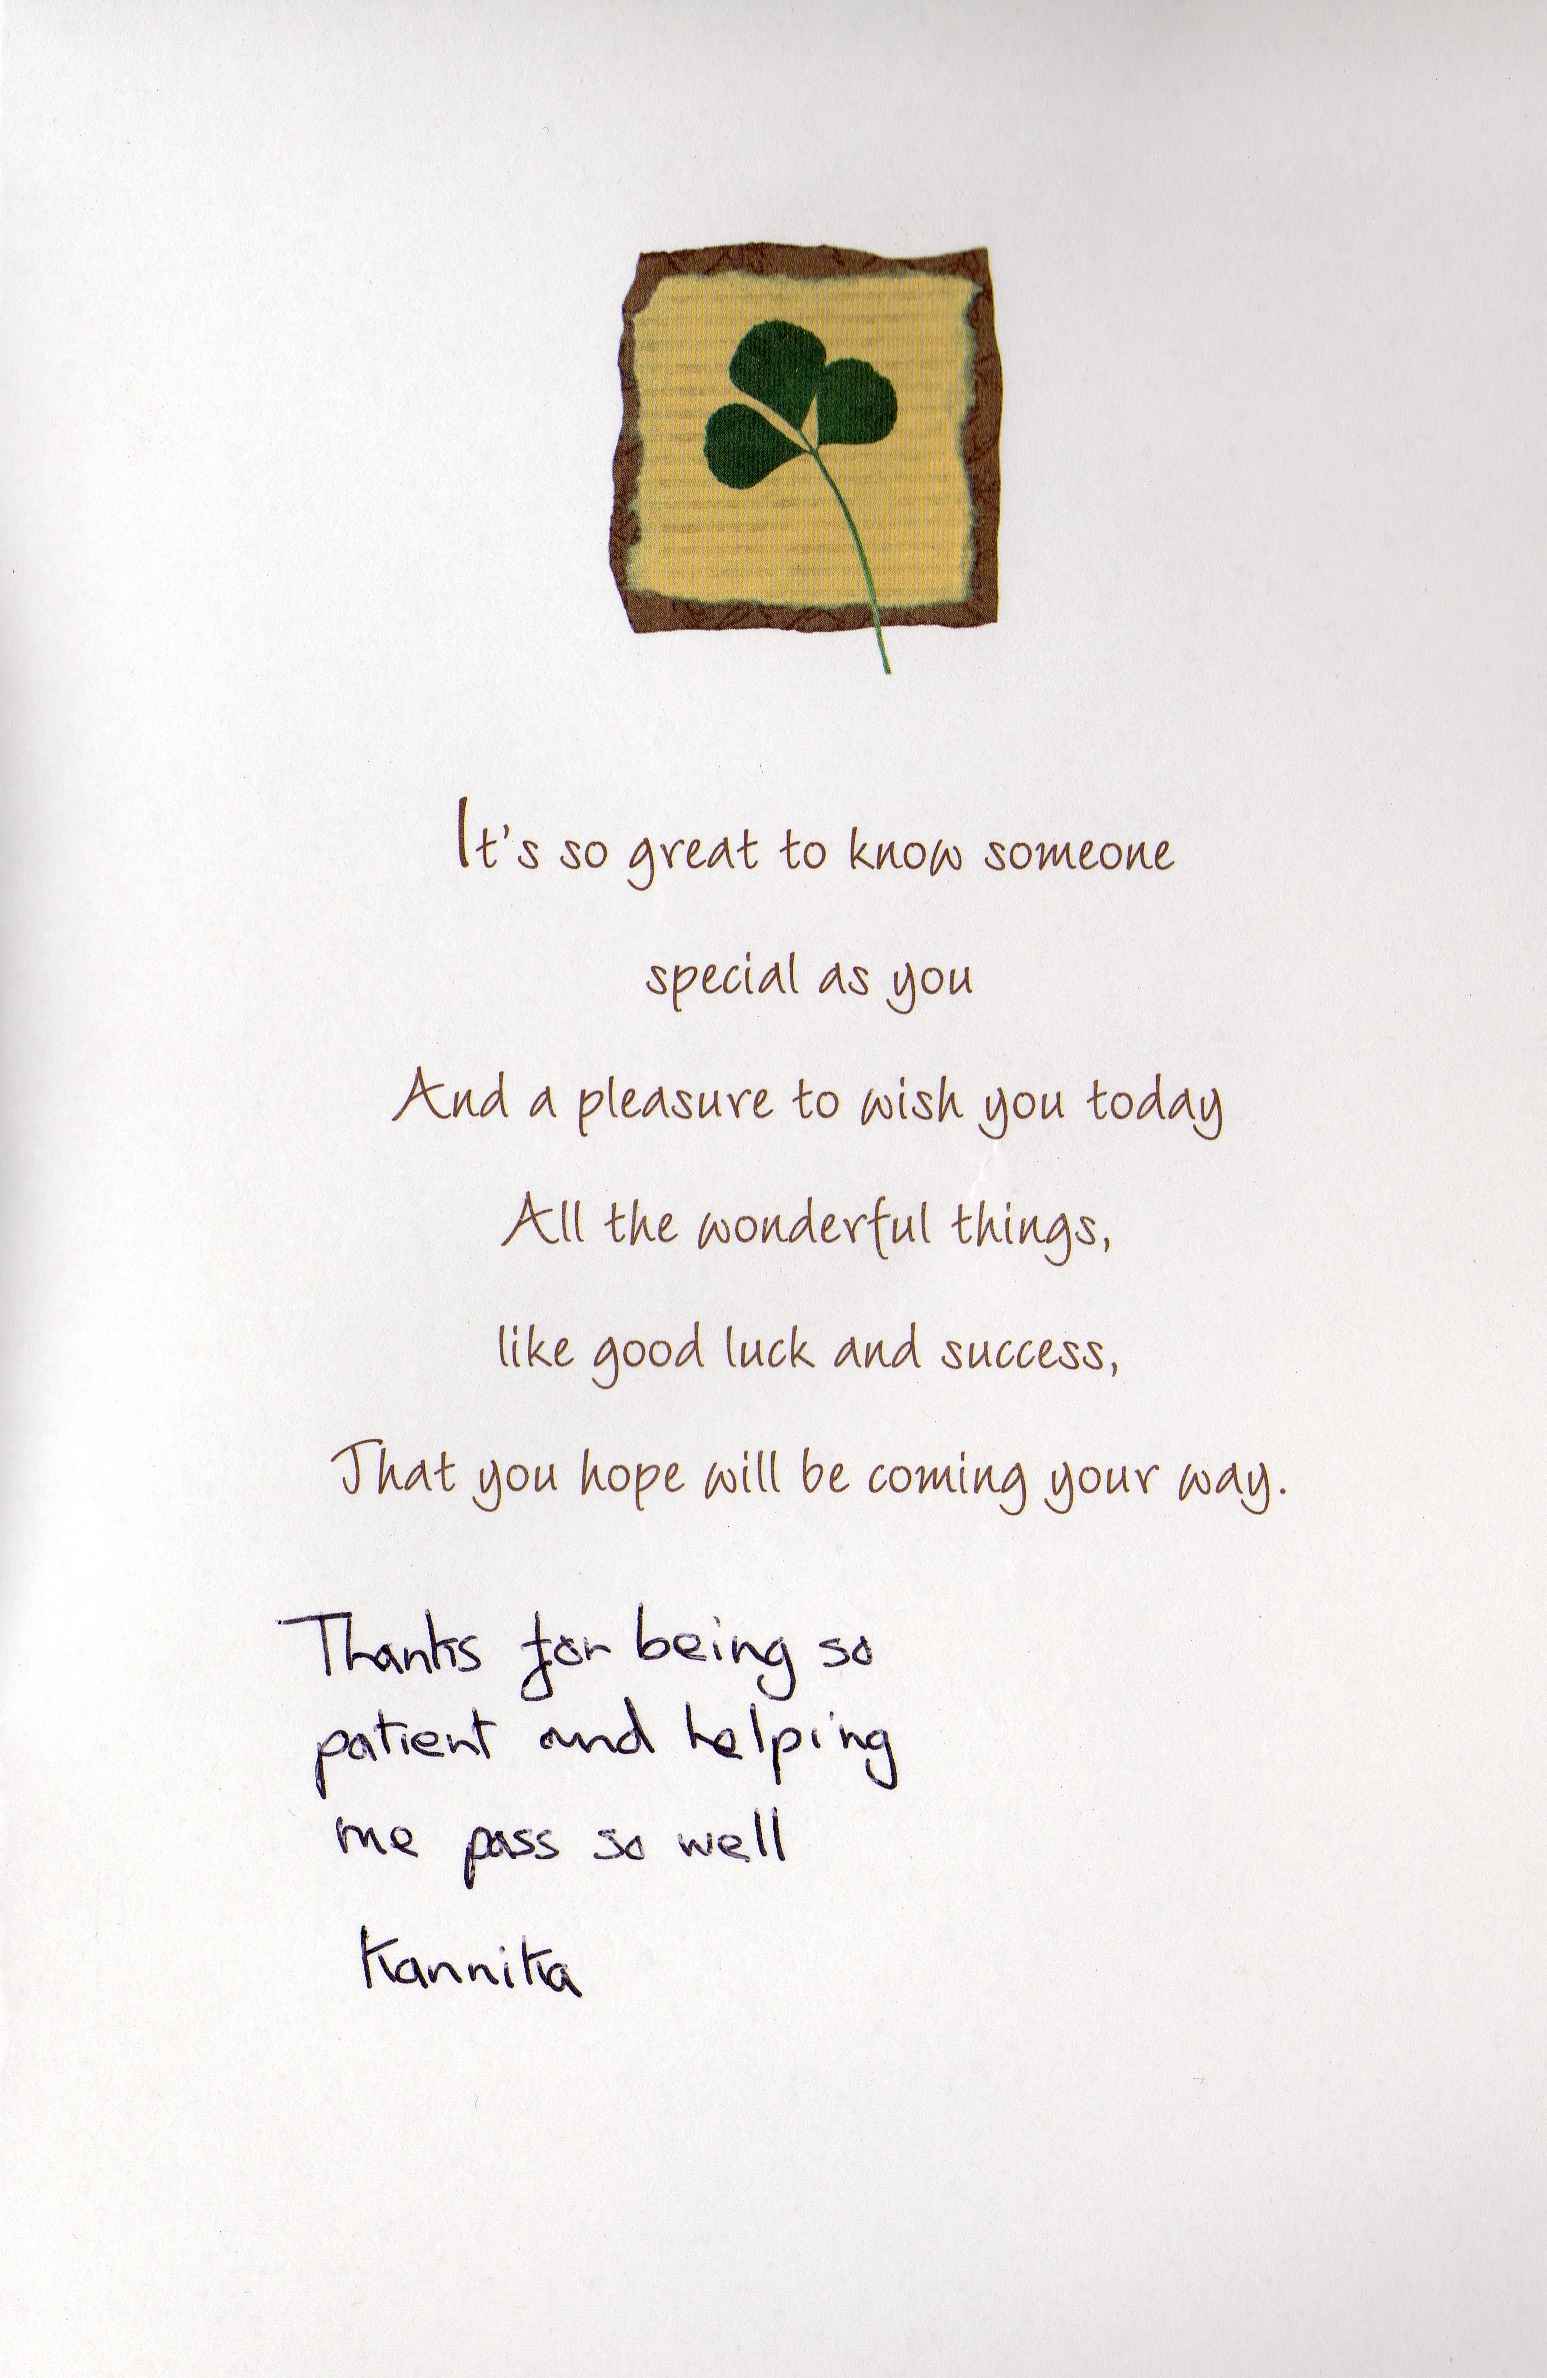 It's so great to know someone
special as you
And a pleasure to wish you today
All the wonderful things,
like good luck and success,
That you hope will be coming your way.
Thanks for being so
patient and helping
me pass so well
Kannika